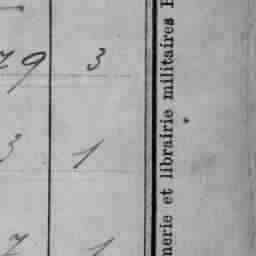 79 3
3 1
7 1
merie et librairie militaires